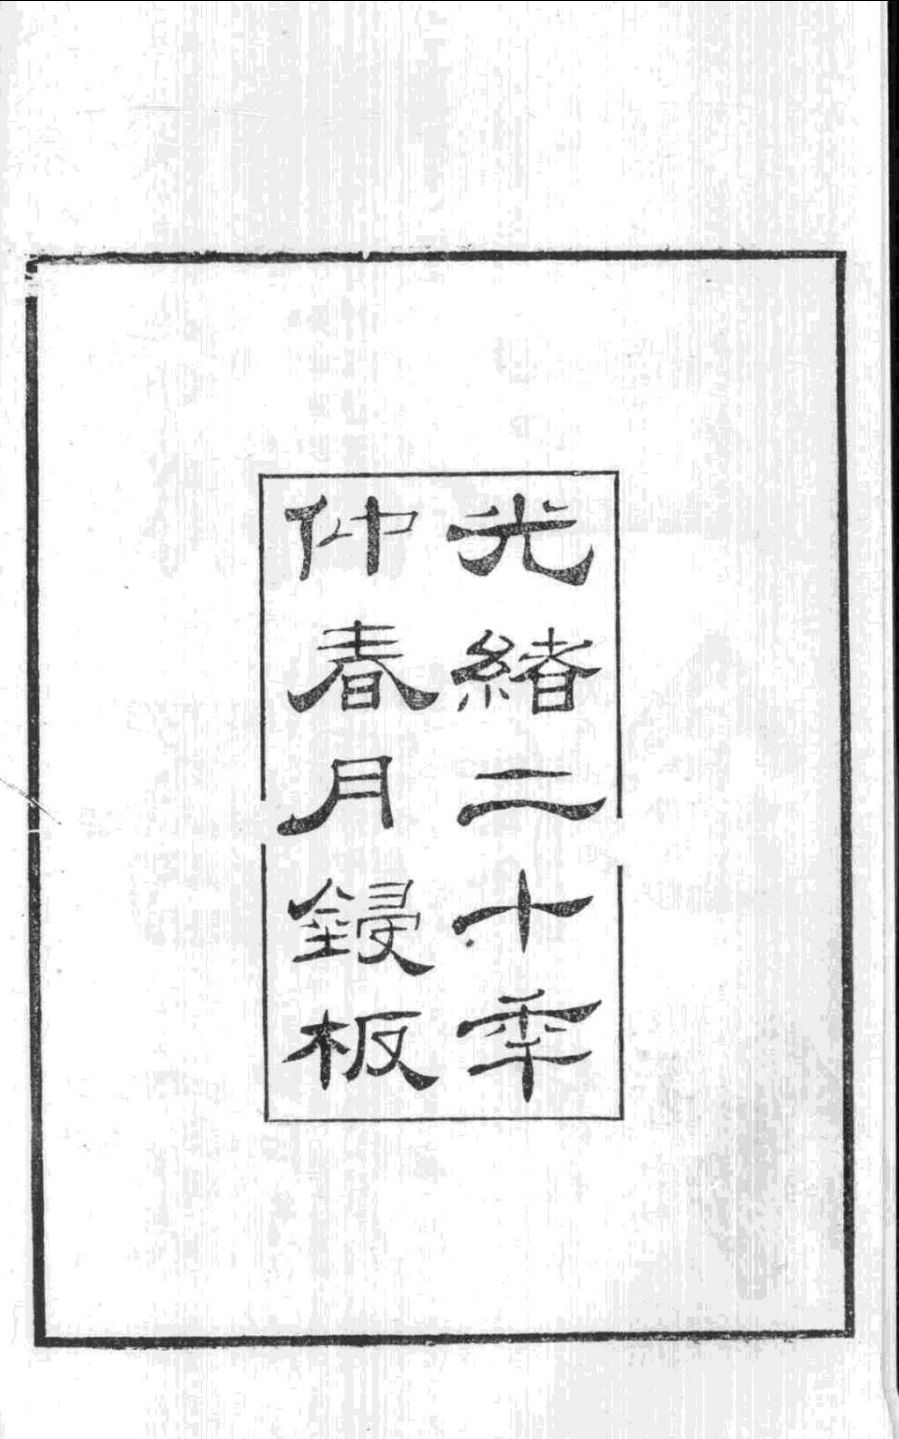 光緒二十年
仲春月鋟板